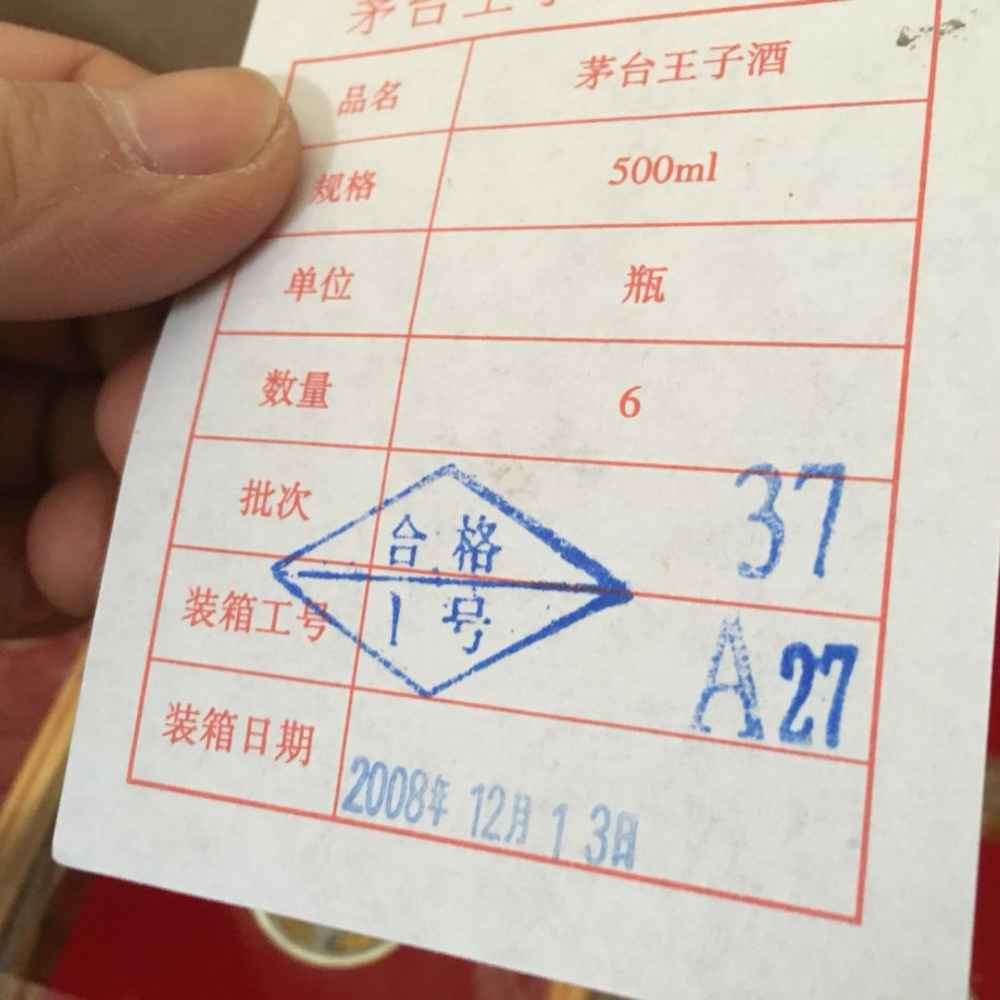 茅台王子
品名 茅台王子酒
规格 500ml
单位 瓶
数量 6
批次 37
合格
1号
装箱工号 A27
装箱日期 2008年 12月 13日